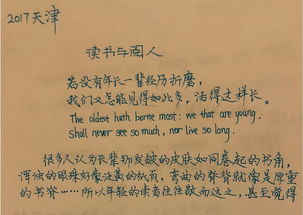 2017天津
读书与阅人
若没有年长一辈经历折磨，
我们又怎能见得如此多，活得这样长。
The oldest hath borne most: we that are young,
Shall never see so much, nor live so long.
很多人认为长辈那皮皱的皮肤如同卷起的书角，
浑浊的眼珠好像泛黄的纸页，弯曲的脊背就像是厚重
的书脊……所以年轻的读者往往敬而远之，甚至觉得